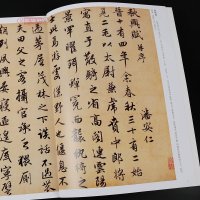 秋興賦 并序
潘安仁
晉十有四年余春秋三十有二始
見二毛以太尉掾兼虎賁中郎將
寓直于散騎之省高閣連雲陽
景罕曜珥蟬冕而襲紈綺之
士此焉游處僕野人也偃息不
過茅屋茂林之下談話不過農
夫田父之客攝官承乏猥廁
朝列夙興晏寢匪遑底寧譬